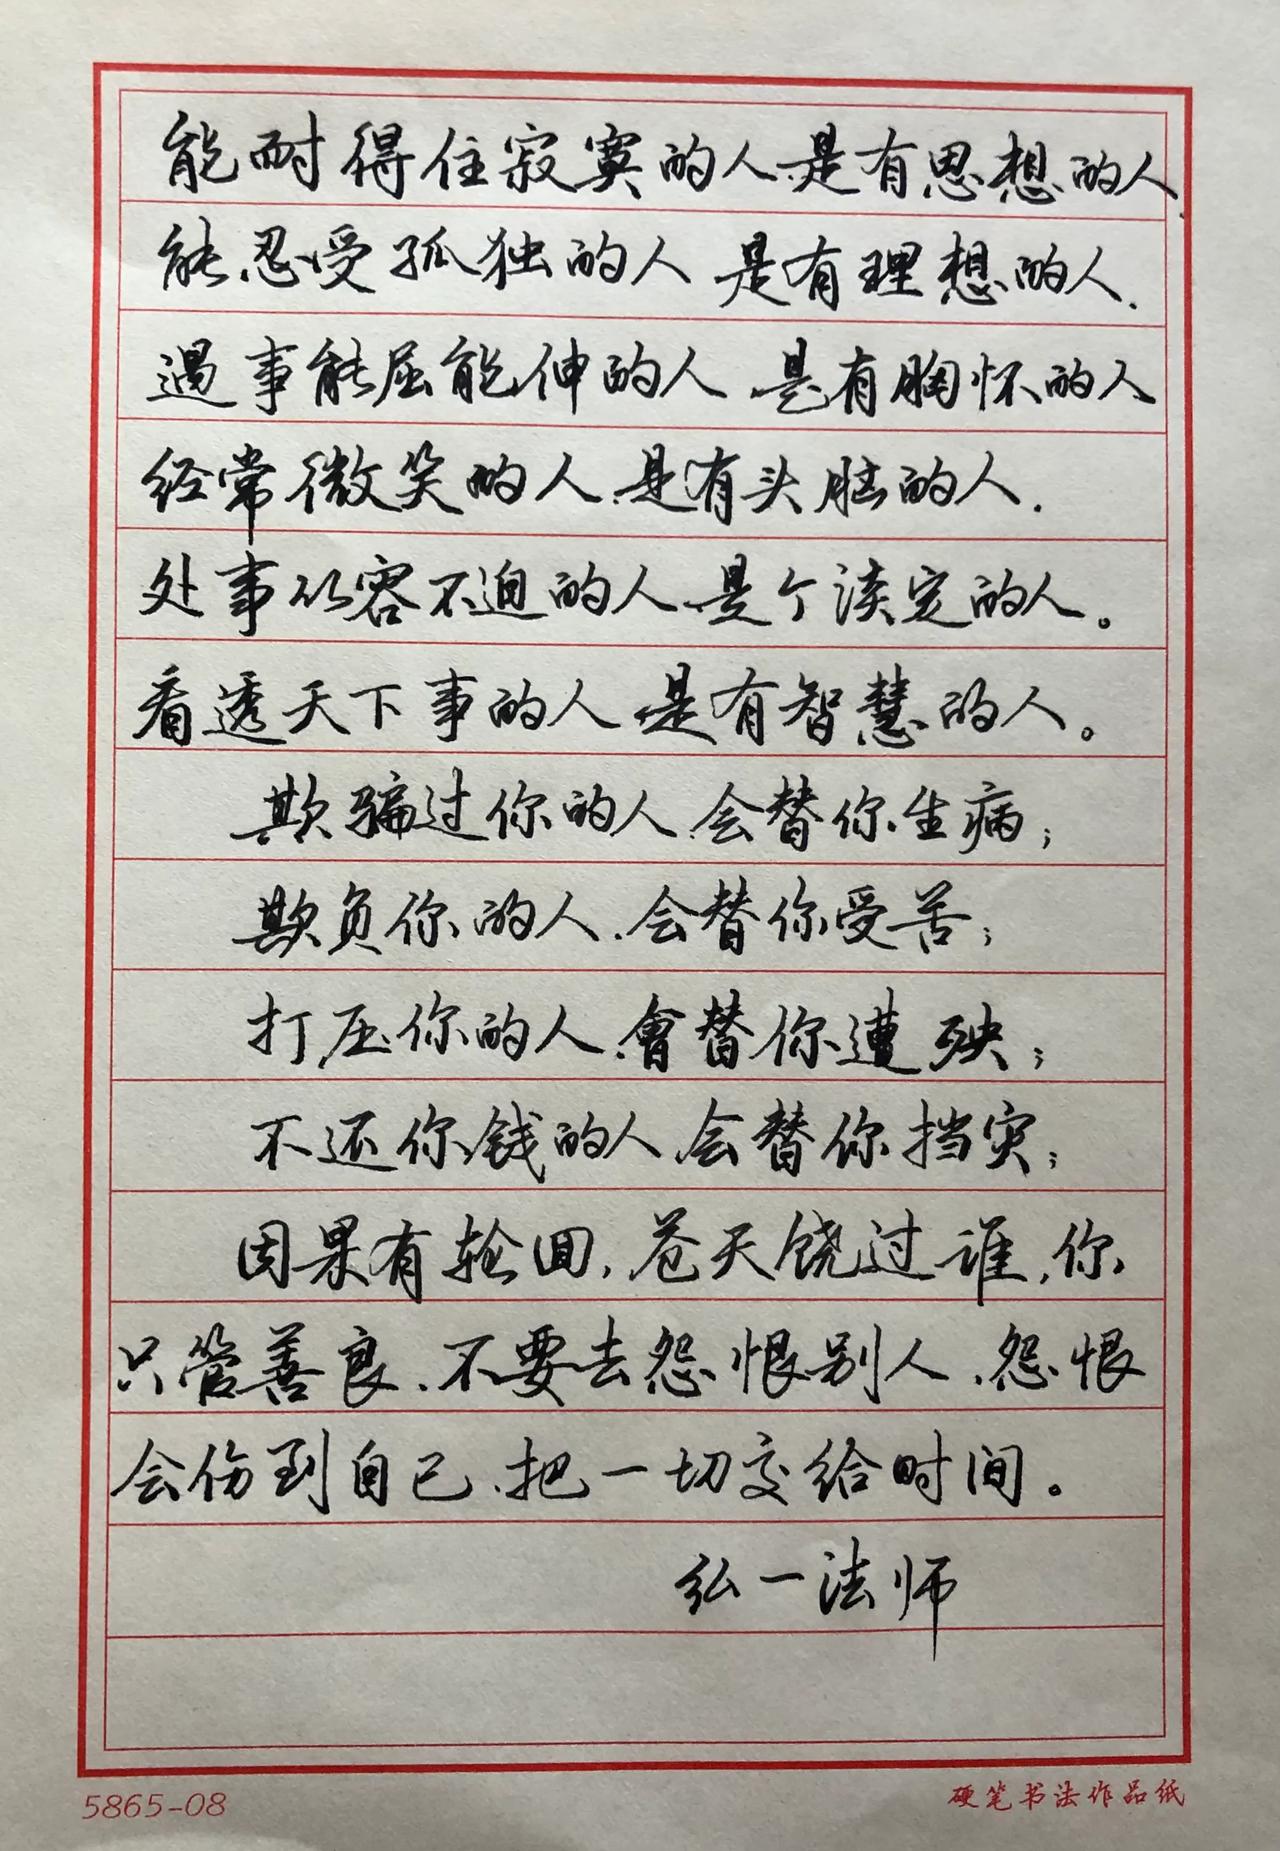 能耐得住寂寞的人.是有思想的人.
能忍受孤独的人 是有理想的人.
遇事能屈能伸的人 是有胸怀的人
经常微笑的人.是有头脑的人.
处事从容不迫的人.是个淡定的人。
看透天下事的人.是有智慧的人。
欺骗过你的人.会替你生病;
欺负你的人.会替你受苦;
打压你的人.會替你遭殃;
不还你钱的人.会替你挡灾;
因果有轮回,苍天饶过谁,你
只管善良.不要去怨恨别人.怨恨
会伤到自己.把一切交给时间。
弘一法师
5865-08 硬笔书法作品纸